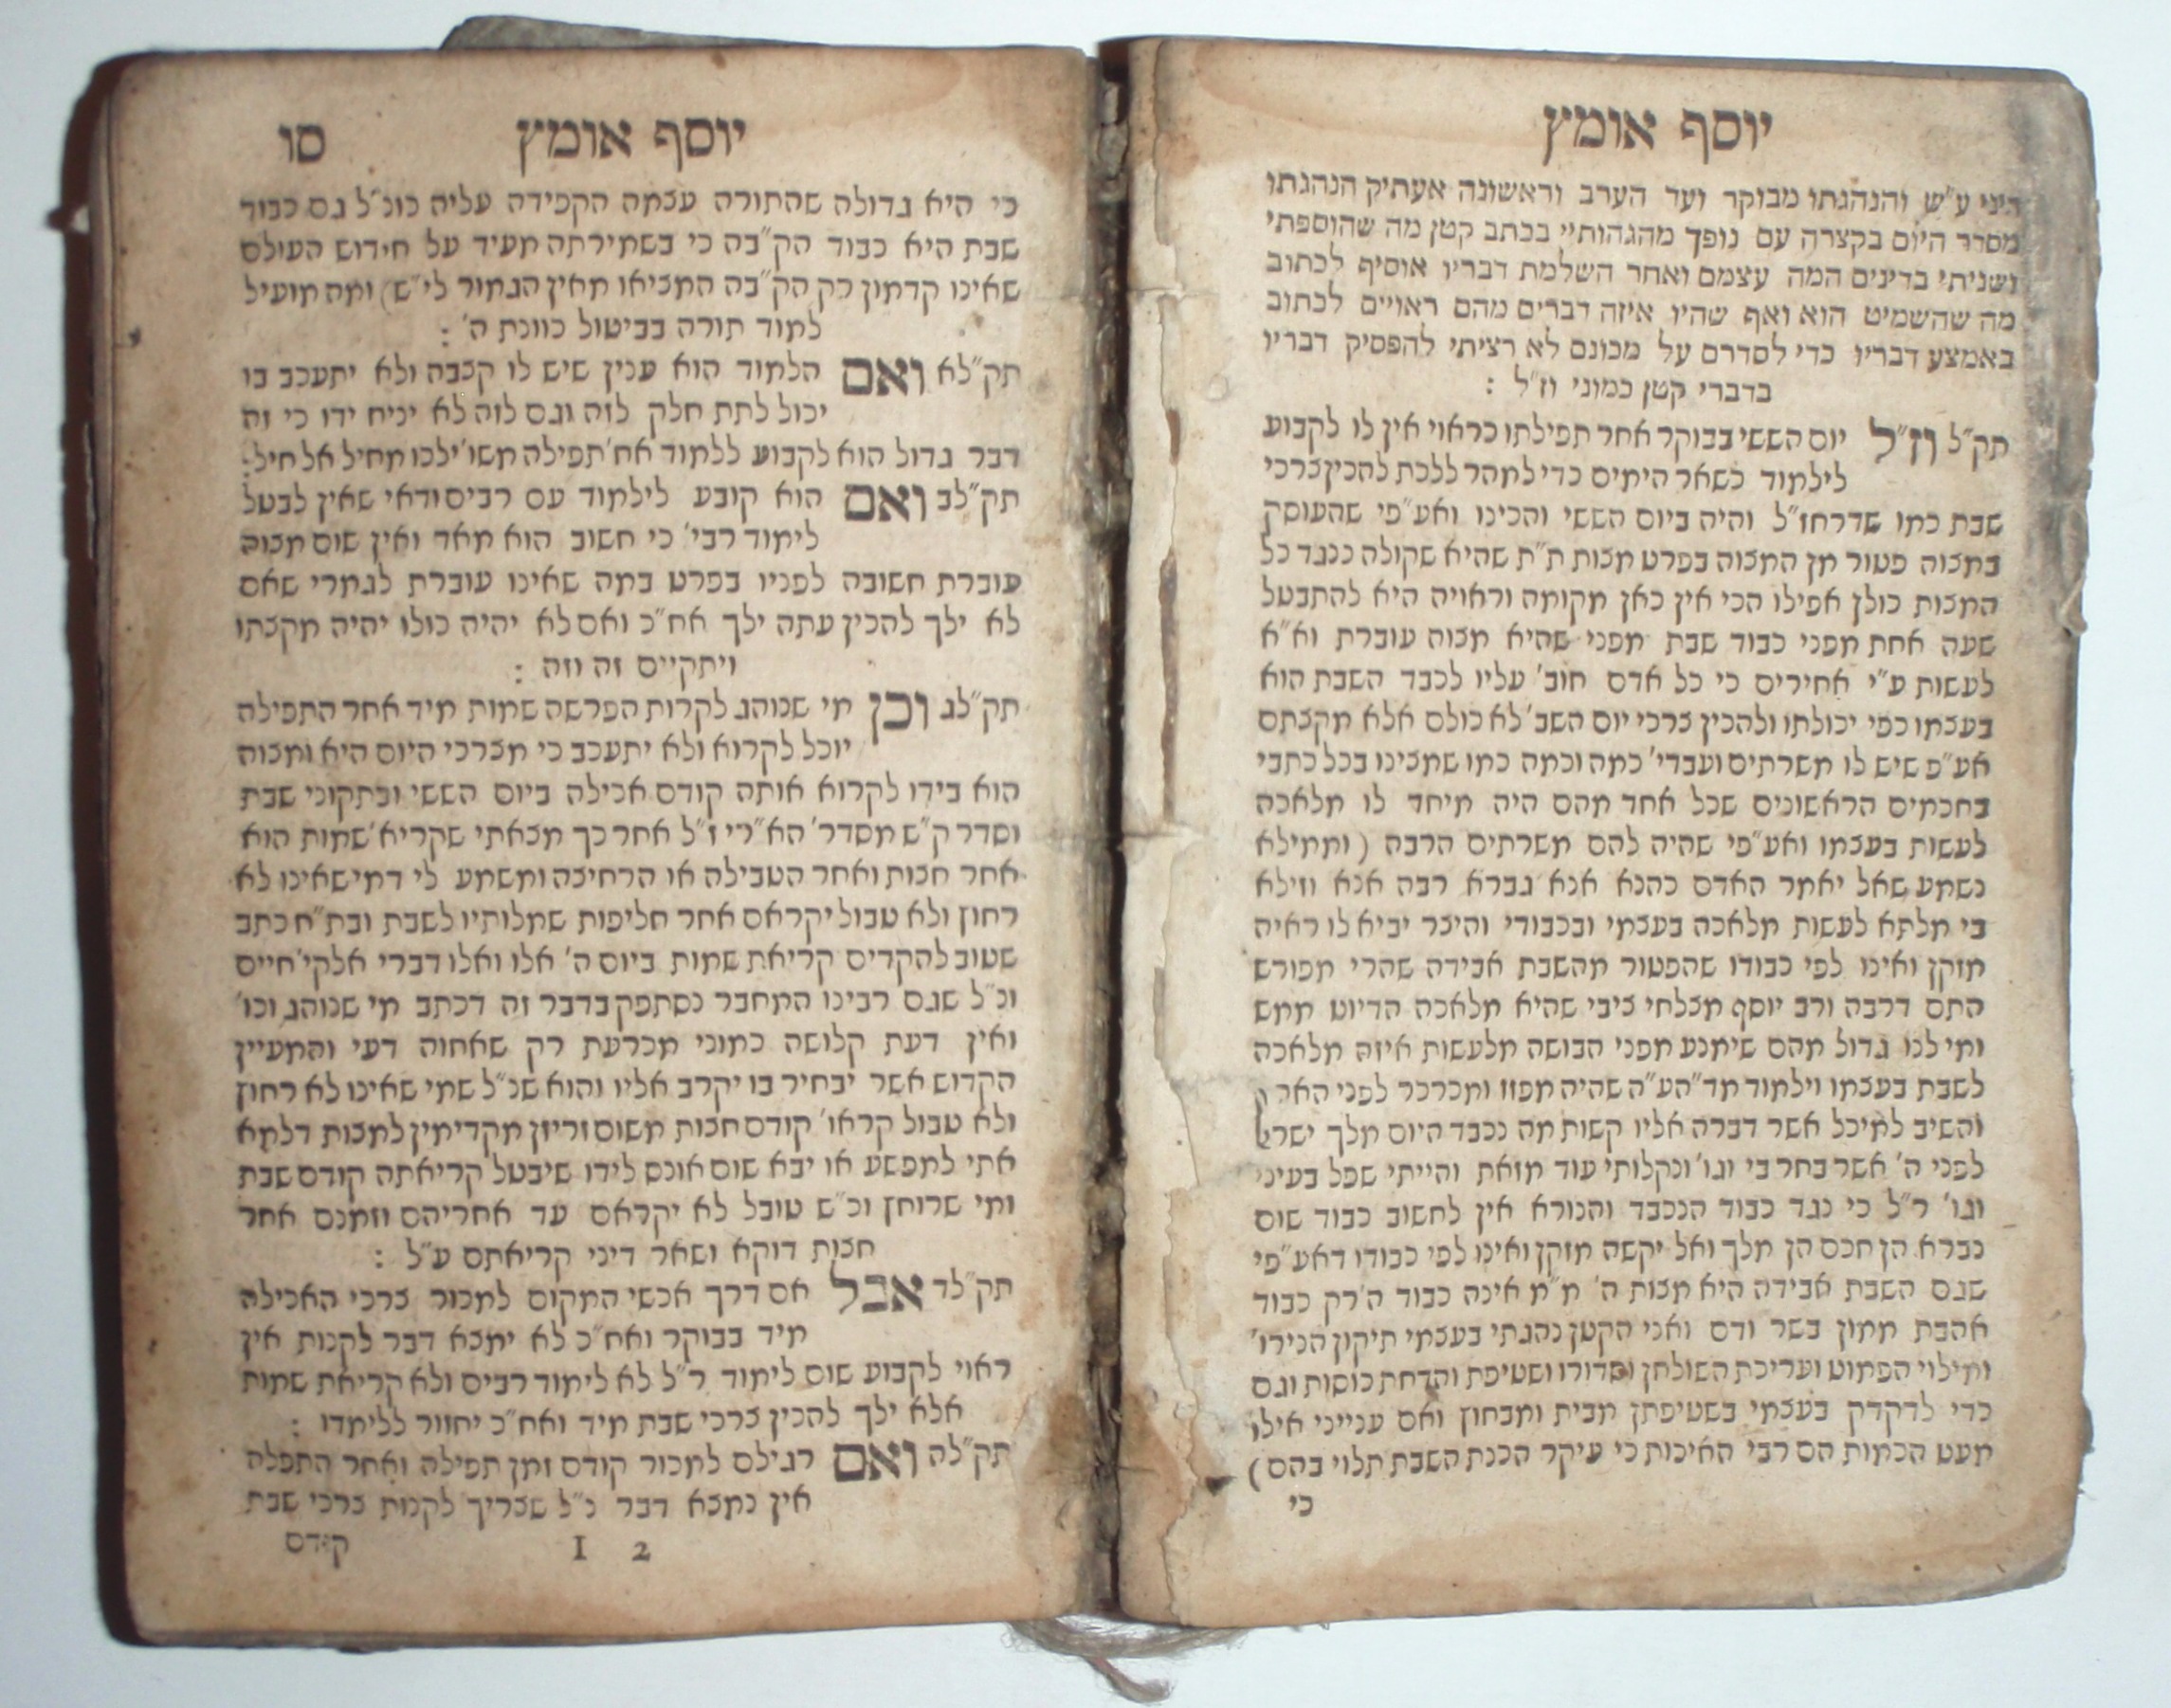 יוסף אומץ
דיני ע"ש והנהגתו מבוקר ועד הערב וראשונה אעתיק הנהגתו
מסדר היום בקצרה עם נופך מהגהותיי בכתב קטן מה שהוספתי
ושניתי בדינים המה עצמם ואחר השלמת דבריו אוסיף לכתוב
מה שהשמיט הוא ואף שהיו איזה דברים מהם ראויים לכתוב
באמצע דבריו כדי לסדרם על מכונם לא רציתי להפסיק דבריו
בדברי קטן כמוני וז"ל :
תק"ל וז"ל יום הששי בבוקר אחר תפילתו כראוי אין לו לקבוע
לילמוד כשאר הימים כדי למהר ללכת להכין צרכי
שבת כמו שדרחז"ל והיה ביום הששי והכינו ואע"פי שהעוסק
במצוה פטור מן המצוה בפרט מצות ת"ת שהיא שקולה כנגד כל
המצות כולן אפילו הכי אין כאן מקומה וראויה היא להתבטל
שעה אחת מפני כבוד שבת מפני שהיא מצוה עוברת וא"א
לעשות ע"י אחירים כי כל אדם חוב' עליו לכבד השבת הוא
בעצמו כפי יכולתו ולהכין צרכי יום השב' לא כולם אלא מקצתם
אע"פ שיש לו משרתים ועבדי' כמה וכמה כמו שמצינו בכל כתבי
בחכמים הראשונים שכל אחד מהם היה מיחד לו מלאכה
לעשות בעצמו ואע"פי שהיה להם משרתים הרבה (וממילא
נשמע שאל יאמר האדם כהנא אנא גברא רבה אנא וזילא
בי מלתא לעשות מלאכה בעצמי ובכבודי והיצר יביא לו ראיה
מזקן ואינו לפי כבודו שהפטור מהשבת אבידה שהרי מפורש
התם דרבה ורב יוסף מצלחי ציבי שהיא מלאכה הדיוט ממש
ומי לנו גדול מהם שימנע מפני הבושה מלעשות איזה מלאכה
לשבת בעצמו וילמוד מד"הע"ה שהיה מפזז ומכרכר לפני האר
והשיב למיכל אשר דברה אליו קשות מה נכבד היום מלך ישראל
לפני ה' אשר בחר בי וגו' ונקלותי עוד מזאת והייתי שפל בעיני
וגו' ר"ל כי נגד כבוד הנכבד והנורא אין לחשוב כבוד שום
נברא הן חכם הן מלך ואל יקשה מזקן ואינו לפי כבודו דאע"פי
שגם השבת אבידה היא מצות ה' מ"מ אינה כבוד ה' רק כבוד
אהבת ממון בשר ודם ואני הקטן נהגתי בעצמי תיקון הנירו'
ומילוי הפמוט ועריכת השולחן וסדורו ושטיפת והדחת כוסות וגם
כדי לדקדק בעצמי בשטיפתן מבית ומבחוץ ואם ענייני אילו
מעט הכמות הם רבי האיכות כי עיקר הכנת השבת תלוי בהם)
כי
יוסף אומץ סו
כי היא גדולה שהתורה עצמה הקפידה עליה כונ"ל גם כבוד
שבת היא כבוד הק"בה כי בשמירתה מעיד על חידוש העולם
שאינו קדמון רק הק"בה המציאו מאין הגמור לי"ש) ומה מועיל
למוד תורה בביטול כוונת ה' :
תק"לא ואם הלמוד הוא ענין שיש לו קצבה ולא יתעכב בו
יכול לתת חלק לזה וגם לזה לא יניח ידו כי זה
דבר גדול הוא לקבוע ללמוד אח' תפילה משו' ילכו מחיל אל חיל:
תק"לב ואם הוא קובע לילמוד עם רבים ודאי שאין לבטל
לימוד רבי' כי חשוב הוא מאד ואין שום מצוה
עוברת חשובה לפניו בפרט במה שאינו עוברת לגמרי שאם
לא ילך להכין עתה ילך אח"כ ואם לא יהיה כולו יהיה מקצתו
ויתקיים זה וזה :
תק"לג וכן מי שנוהג לקרות הפרשה שמות מיד אחר התפילה
יוכל לקרוא ולא יתעכב כי מצרכי היום היא ומצוה
הוא בידו לקרוא אותה קודם אכילה ביום הששי ובתקוני שבת
וסדר ק"ש מסדר' הא"רי ז"ל אחר כך מצאתי שקריא' שמות הוא
אחר חצות ואחר הטבילה או הרחיצה ומשמע לי דמי שאינו לא
רחוץ ולא טבול יקראם אחר חליפות שמלותיו לשבת ובת"ח כתב
שטוב להקדים קריאת שמות ביום ה' אלו ואלו דברי אלקי' חיים
ונ"ל שגם רבינו המחבר נסתפק בדבר זה דכתב מי שנוהג וכו'
ואין דעת קלושה כמוני מכרעת רק שאחוה דעי והמעיין
הקדוש אשר יבחיר בו יקרב אליו והוא שנ"ל שמי שאינו לא רחוץ
ולא טבול קראו' קודם חצות משום זריזין מקדימין למצות דלמא
אתי למפשע או יבא שום אונס לידו שיבטל קריאתה קודם שבת
ומי שרוחץ וכ"ש טובל לא יקראם עד אחריהם וזמנם אחר
חצות דוקא ושאר דיני קריאתם ע"ל :
תק"לד אבל אם דרך אנשי המקום למכור צרכי האכילה
מיד בבוקר ואח"כ לא ימצא דבר לקנות אין
ראוי לקבוע שום לימוד ר"ל לא לימוד רבים ולא קריאת שמות
אלא ילך להכין צרכי שבת מיד ואח"כ יחזור ללימודו :
תק"לה ואם רגילם למכור קודם זמן תפילה ואחר התפלה
אין נמצא דבר נ"ל שצריך לקנות צרכי שבת
קודם
I 2